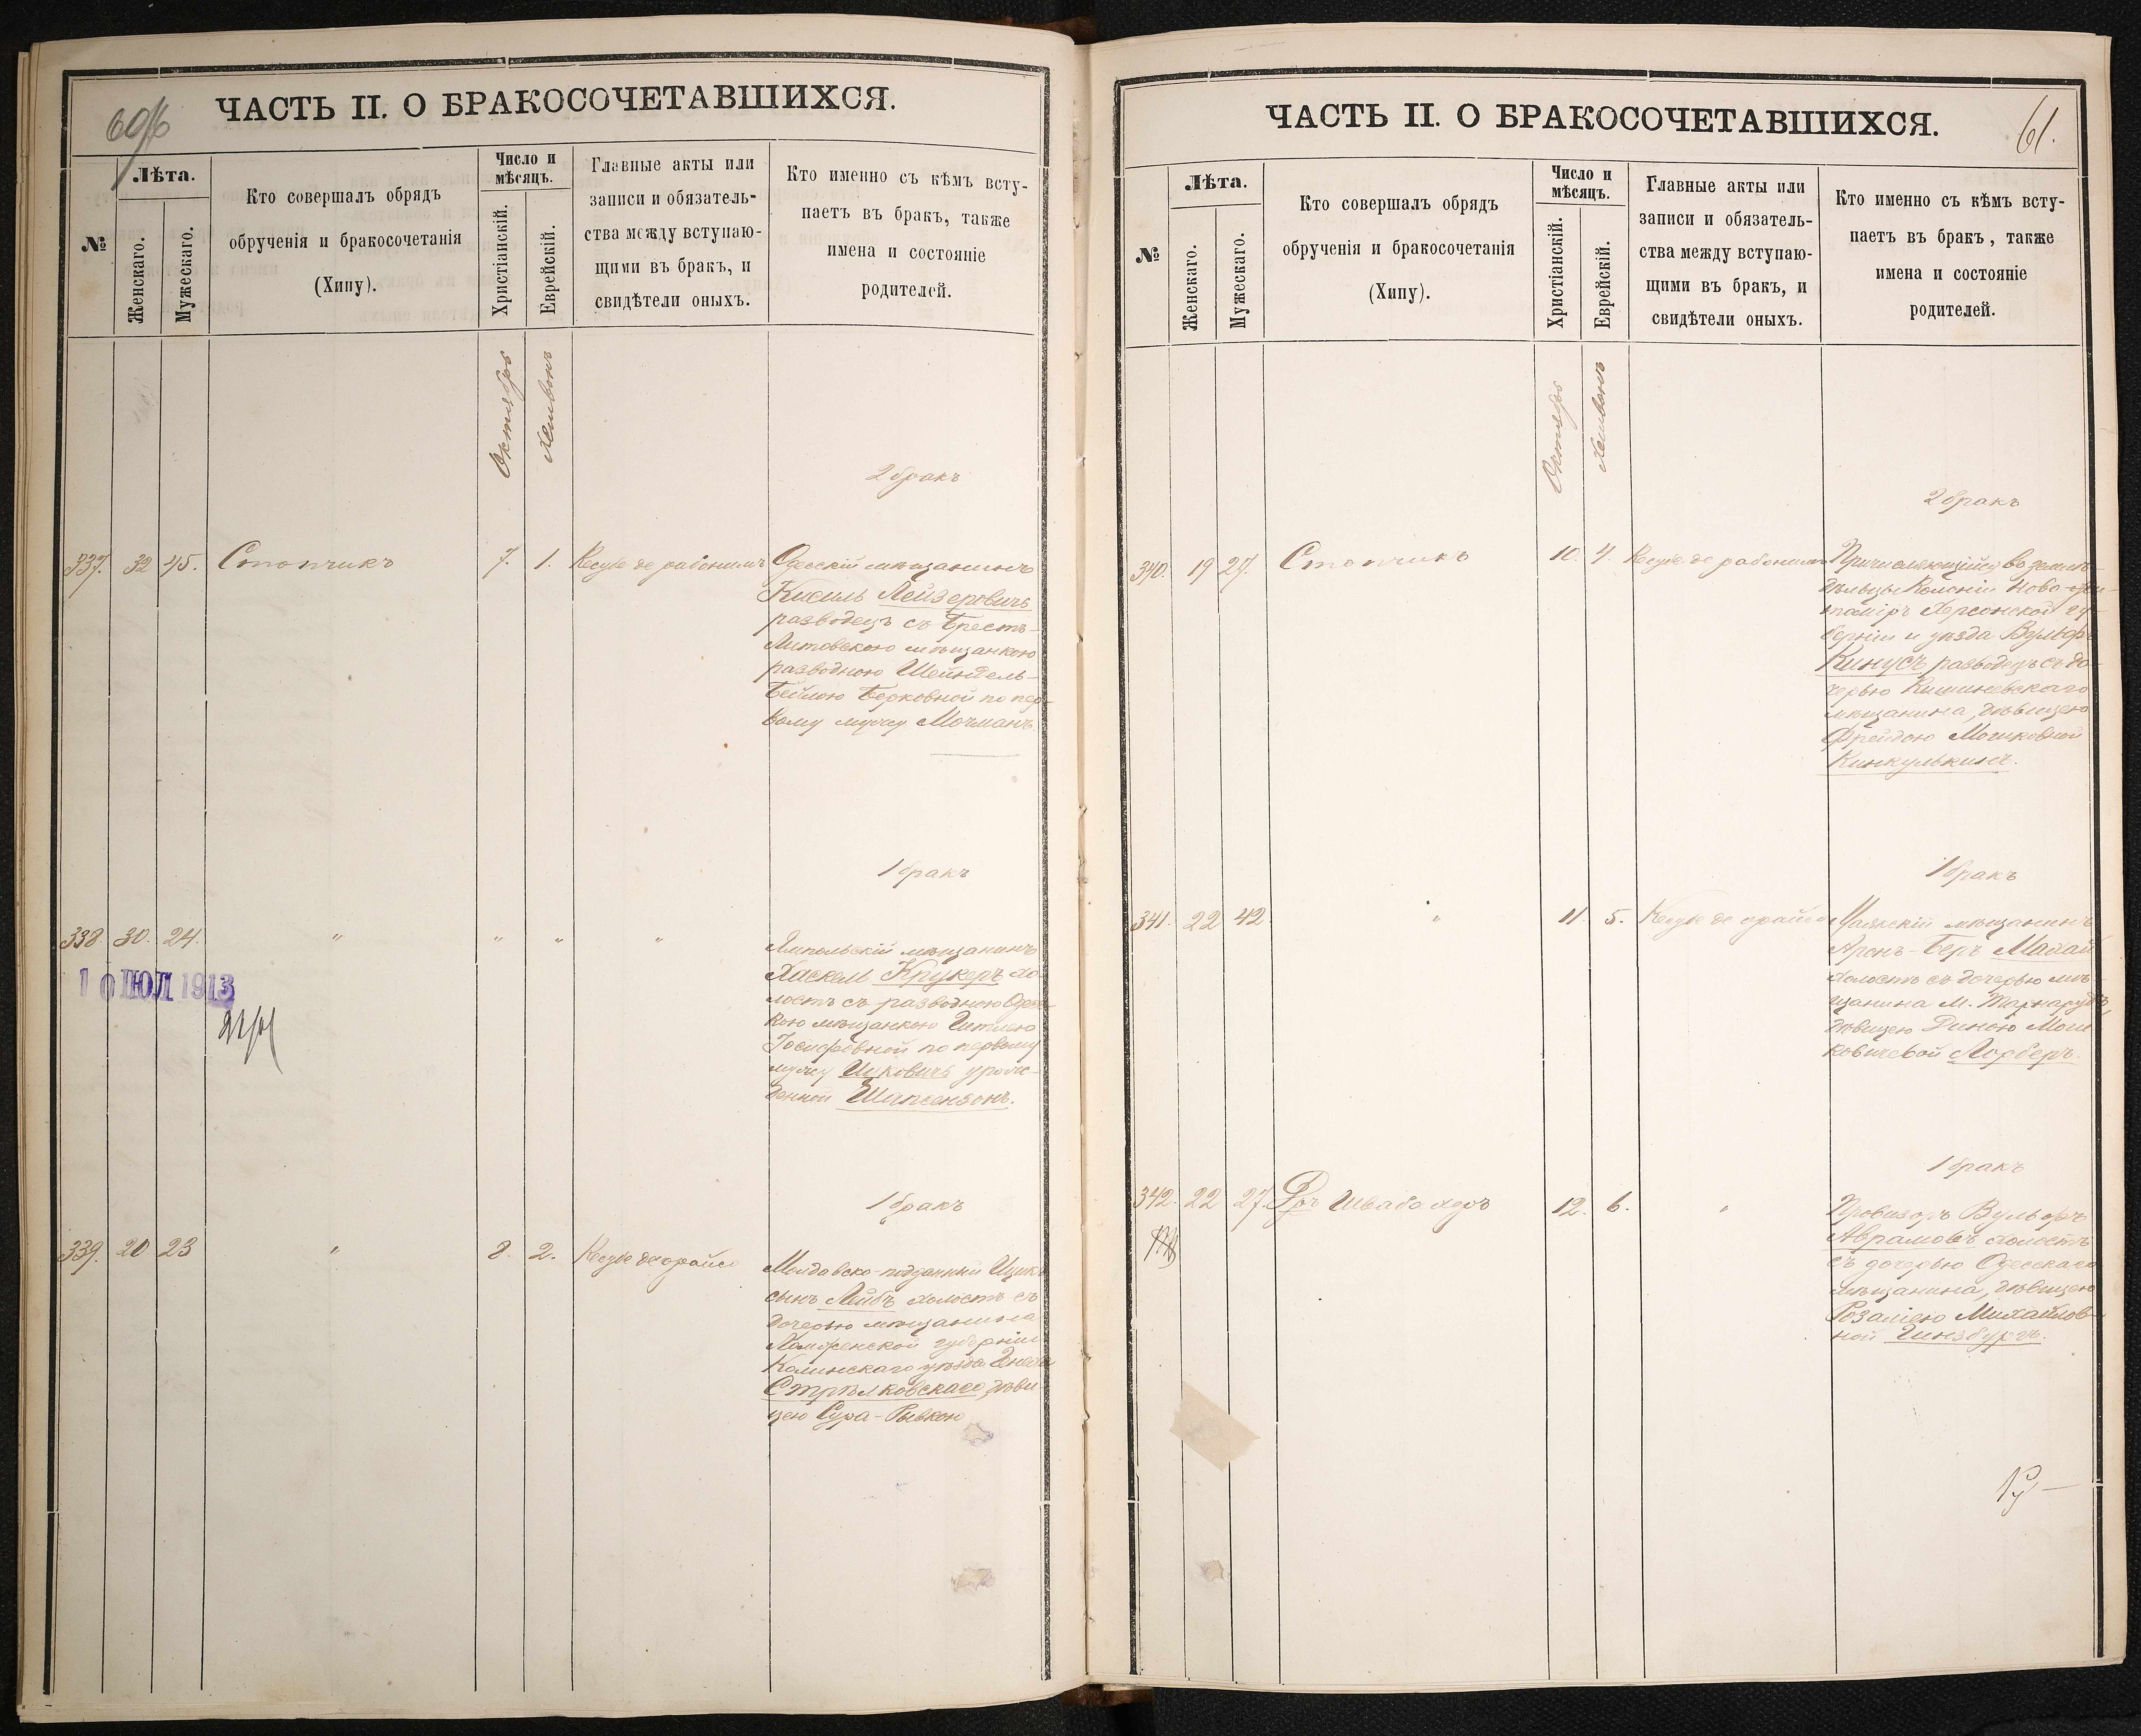 60/6
ЧАСТЬ II. О БРАКОСОЧЕТАВШИХСЯ.
№
Лѣта.
Женскаго.
Мужескаго.
Кто совершалъ обрядъ
обрученія и бракосочетанія
(Хипу).
Число и
мѣсяцъ.
Христіанскій.
Еврейскій.
Главные акты или
записи и обязатель-
ства между вступаю-
щими въ бракъ, и
свидѣтели оныхъ.
Кто именно съ кѣмъ всту-
паетъ въ бракъ, также
имена и состояніе
родителей.
Октябрь
Хешвонъ
2 бракъ
337. 32 45. Стопчикъ 7. 1. Кесубе де
Одесскій мѣщанинъ
Кисиль Лейзеровичъ
разводецъ съ Брестъ-
Литовскою мѣщанкою
разводною Шейндель-
Бейлою Берковной по пер-
вому мужу Мочманъ.
1 бракъ
338. 30. 24. " " " "
Ямпольскій мѣщанинъ
Хаскель Крукеръ хо-
лостъ съ разводною Одесс-
кою мѣщанкою Гитлею
Іосифовной по первому
мужу Ицковичъ урож-
денной
10 ІЮЛ 1913
1 бракъ
339. 20 23 " 8. 2. Кесубе де орайсо
Молдавско-подданный Ицикъ
сынъ Лейбъ холостъ съ
дочерью мѣщанина
Ломженской губерніи
уѣзда
Стрѣлковскаго, дѣви-
цею Сура-Ривкою
61.
ЧАСТЬ II. О БРАКОСОЧЕТАВШИХСЯ.
№
Лѣта.
Женскаго.
Мужескаго.
Кто совершалъ обрядъ
обрученія и бракосочетанія
(Хипу).
Число и
мѣсяцъ.
Христіанскій.
Еврейскій.
Главные акты или
записи и обязатель-
ства между вступаю-
щими въ бракъ, и
свидѣтели оныхъ.
Кто именно съ кѣмъ всту-
паетъ въ бракъ, также
имена и состояніе
родителей.
Октябрь
Хешвонъ
2 бракъ
340. 19 27. Стопчикъ 10. 4. Кесубе де
Причисляющійся во земле-
дѣльцы Колоніи Ново-Жи-
томіръ Херсонской гу-
берніи и уѣзда Вольфъ
Кинусъ, разводецъ съ до-
черью Кишиневскаго
мѣщанина, дѣвицею
Фрейдою Мошковной
Кинкулькинъ.
1 бракъ
341. 22 42 " 11. 5. Кесубе де орайсо
Маякскій мѣщанинъ
Аронъ-Беръ Махай
холостъ съ дочерью мѣ-
щанина М. Тарнаруды,
дѣвицею Диною Мош-
ковичевой Лорберъ.
1 бракъ
342. 22 27. Дръ Швабахеръ 12. 6. "
Провизоръ Вульфъ
Аврамовъ холостъ
съ дочерью Одесскаго
мѣщанина, дѣвицею
Розаліею Михайлов-
ной Гинзбургъ.